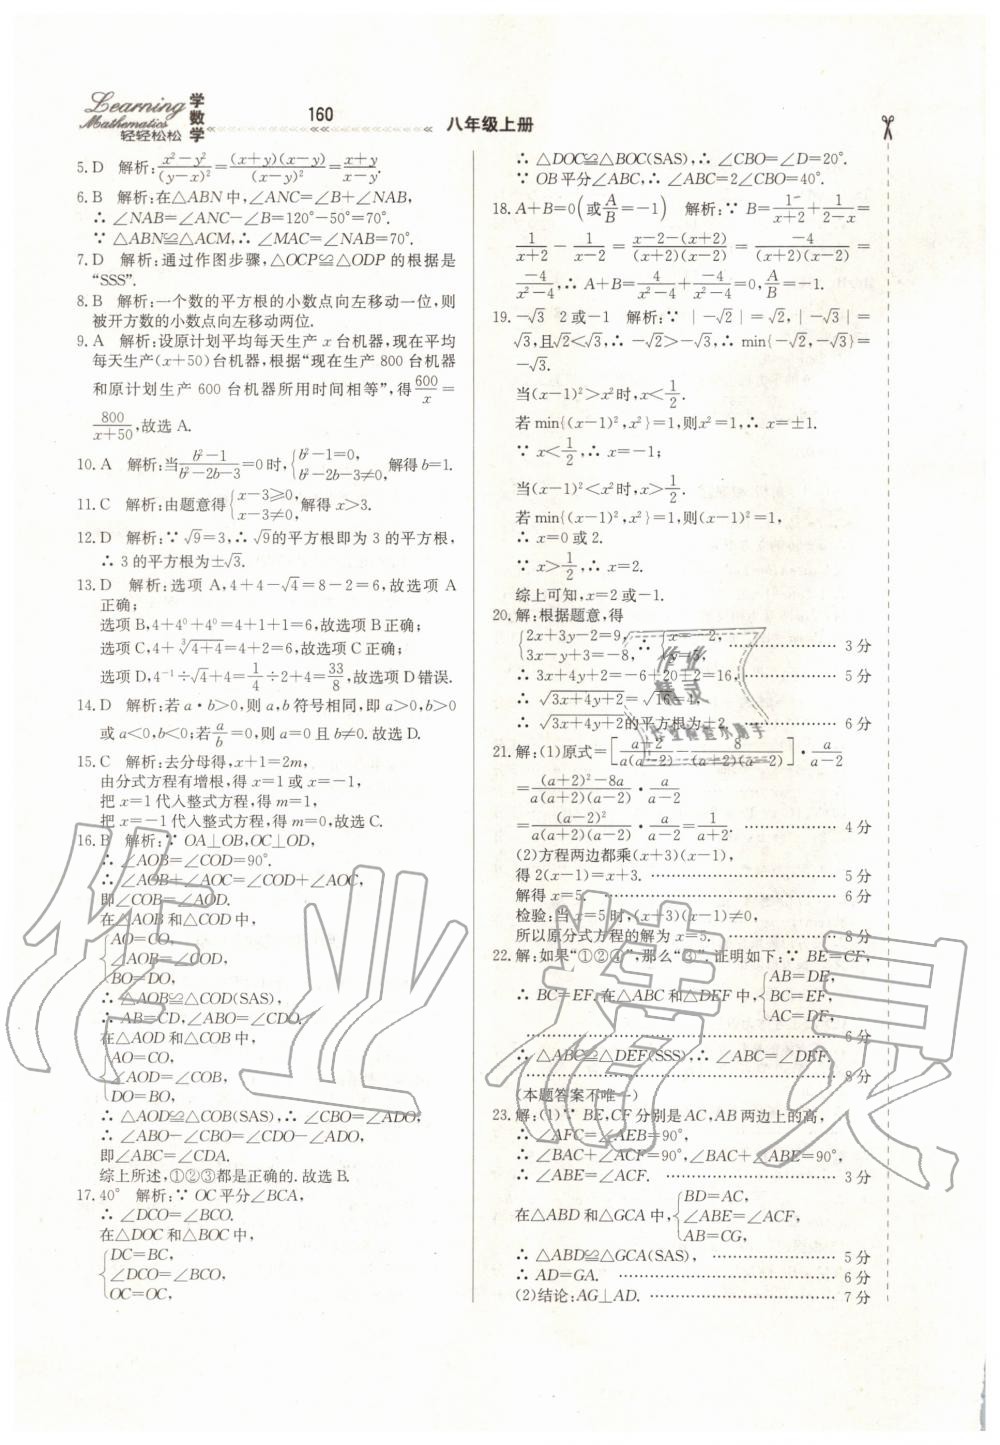 Learning
Mathematics
轻轻松松
学数学
160
八年级上册
5. D 解析:(x²-y²)/(y-x)²=(x+y)(x-y)/(x-y)²=(x+y)/(x-y).
6. B 解析:在△ABN中,∠ANC=∠B+∠NAB,
∴ ∠NAB=∠ANC-∠B=120°-50°=70°.
∵ △ABN≌△ACM,∴ ∠MAC=∠NAB=70°.
7. D 解析:通过作图步骤,△OCP≌△ODP的根据是
“SSS”.
8. B 解析:一个数的平方根的小数点向左移动一位,则
被开方数的小数点向左移动两位.
9. A 解析:设原计划平均每天生产x台机器,现在平均
每天生产(x+50)台机器,根据“现在生产800台机器
和原计划生产600台机器所用时间相等”,得600/x=
800/(x+50),故选A.
10. A 解析:当(b²-1)/(b²-2b-3)=0时,{b²-1=0, b²-2b-3≠0, 解得b=1.
11. C 解析:由题意得{x-3≥0, x-3≠0, 解得x>3.
12. D 解析:∵ √9=3,∴ √9的平方根即为3的平方根,
∴ 3的平方根为±√3.
13. D 解析:选项A,4+4-√4=8-2=6,故选项A
正确;
选项B,4+4⁰+4⁰=4+1+1=6,故选项B正确;
选项C,4+∛(4+4)=4+2=6,故选项C正确;
选项D,4⁻¹÷√4+4=1/4÷2+4=33/8,故选项D错误.
14. D 解析:若a·b>0,则a,b符号相同,即a>0,b>0
或a<0,b<0;若a/b=0,则a=0且b≠0.故选D.
15. C 解析:去分母得,x+1=2m,
由分式方程有增根,得x=1或x=-1,
把x=1代入整式方程,得m=1,
把x=-1代入整式方程,得m=0,故选C.
16. B 解析:∵ OA⊥OB,OC⊥OD,
∴ ∠AOB=∠COD=90°.
∴ ∠AOB+∠AOC=∠COD+∠AOC,
即∠COB=∠AOD.
在△AOB和△COD中,
{AO=CO,
∠AOB=∠COD,
BO=DO,
∴ △AOB≌△COD(SAS),
∴ AB=CD,∠ABO=∠CDO.
在△AOD和△COB中,
{AO=CO,
∠AOD=∠COB,
DO=BO,
∴ △AOD≌△COB(SAS),∴ ∠CBO=∠ADO,
∴ ∠ABO-∠CBO=∠CDO-∠ADO,
即∠ABC=∠CDA.
综上所述,①②③都是正确的.故选B.
17. 40° 解析:∵ OC平分∠BCA,
∴ ∠DCO=∠BCO.
在△DOC和△BOC中,
{DC=BC,
∠DCO=∠BCO,
OC=OC,
∴ △DOC≌△BOC(SAS),∴ ∠CBO=∠D=20°.
∵ OB平分∠ABC,∴ ∠ABC=2∠CBO=40°.
18. A+B=0(或A/B=-1) 解析:∵ B=1/(x+2)+1/(2-x)=
1/(x+2)-1/(x-2)=(x-2-(x+2))/((x+2)(x-2))=-4/((x+2)(x-2))=
-4/(x²-4),∴ A+B=4/(x²-4)+-4/(x²-4)=0,A/B=-1.
19. -√3 2或-1 解析:∵ |-√2|=√2,|-√3|=
√3,且√2<√3,∴ -√2>-√3,∴ min{-√2,-√3}=
-√3.
当(x-1)²>x²时,x<1/2.
若min{(x-1)²,x²}=1,则x²=1,∴ x=±1.
∵ x<1/2,∴ x=-1;
当(x-1)²<x²时,x>1/2.
若min{(x-1)²,x²}=1,则(x-1)²=1,
∴ x=0或2.
∵ x>1/2,∴ x=2.
综上可知,x=2或-1.
20. 解:根据题意,得
{2x+3y-2=9, 3x-y+3=-8, ∴ {x=-2, y=5, …………………… 3分
∴ 3x+4y+2=-6+20+2=16, …………………… 5分
∴ √(3x+4y+2)=√16=4.
∴ √(3x+4y+2)的平方根为±2. …………………… 6分
21. 解:(1)原式=[(a+2)/(a(a-2))-8/((a+2)(a-2))]·a/(a-2)
=((a+2)²-8a)/(a(a+2)(a-2))·a/(a-2)
=(a-2)²/(a(a+2)(a-2))·a/(a-2)=1/(a+2). …………………… 4分
(2)方程两边都乘(x+3)(x-1),
得2(x-1)=x+3. …………………… 5分
解得x=5. …………………… 6分
检验:当x=5时,(x+3)(x-1)≠0,
所以原分式方程的解为x=5. …………………… 8分
22. 解:如果“①②④”,那么“③”.证明如下:∵ BE=CF,
∴ BC=EF,在△ABC和△DEF中,{AB=DE, BC=EF, AC=DF,
…………………… 6分
∴ △ABC≌△DEF(SSS),∴ ∠ABC=∠DEF.
…………………… 8分
(本题答案不唯一)
23. 解:(1)∵ BE,CF分别是AC,AB两边上的高,
∴ ∠AFC=∠AEB=90°,
∴ ∠BAC+∠ACF=90°,∠BAC+∠ABE=90°,
∴ ∠ABE=∠ACF. …………………… 3分
在△ABD和△GCA中,{BD=AC, ∠ABE=∠ACF, AB=CG,
∴ △ABD≌△GCA(SAS), …………………… 5分
∴ AD=GA. …………………… 6分
(2)结论:AG⊥AD. …………………… 7分
作业精灵
作业
精灵